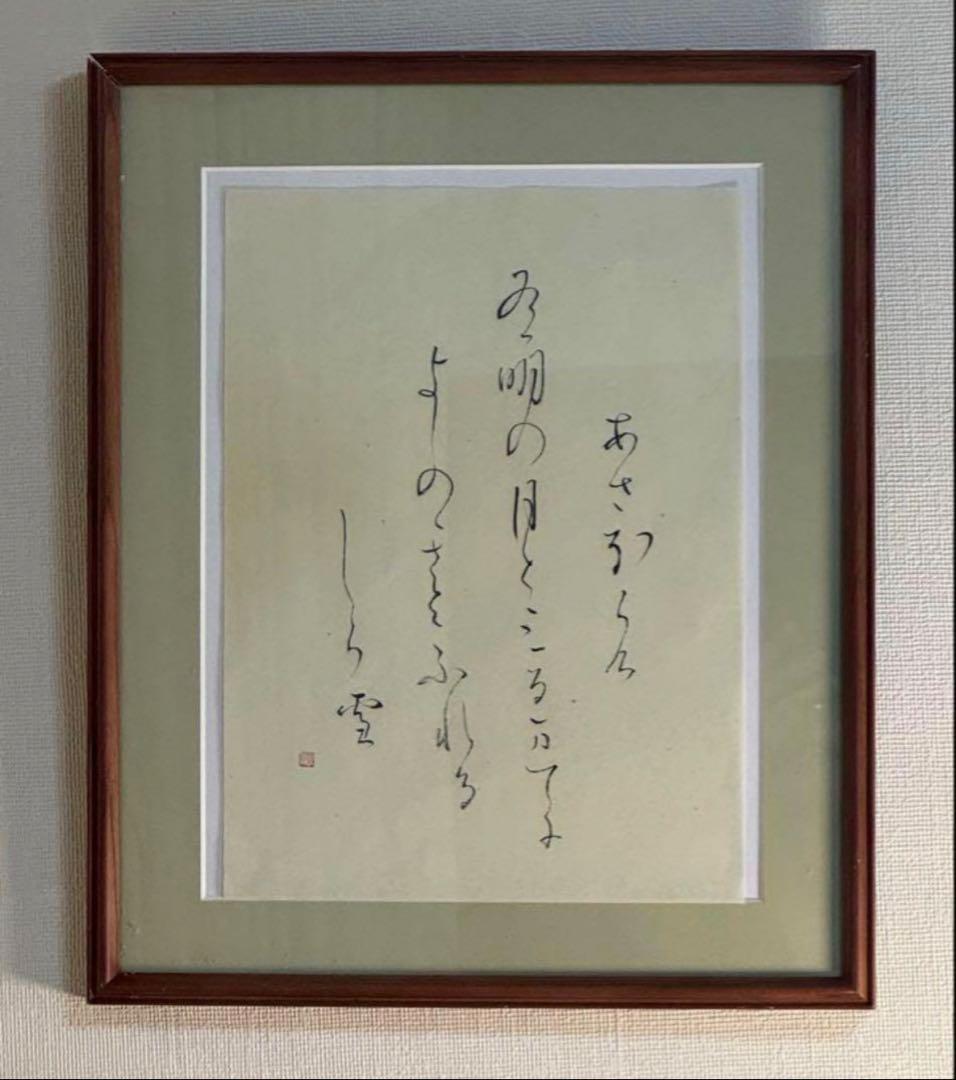 あさほらけ
有明の月とみるまてに
よしのゝさとにふれる
しら雪